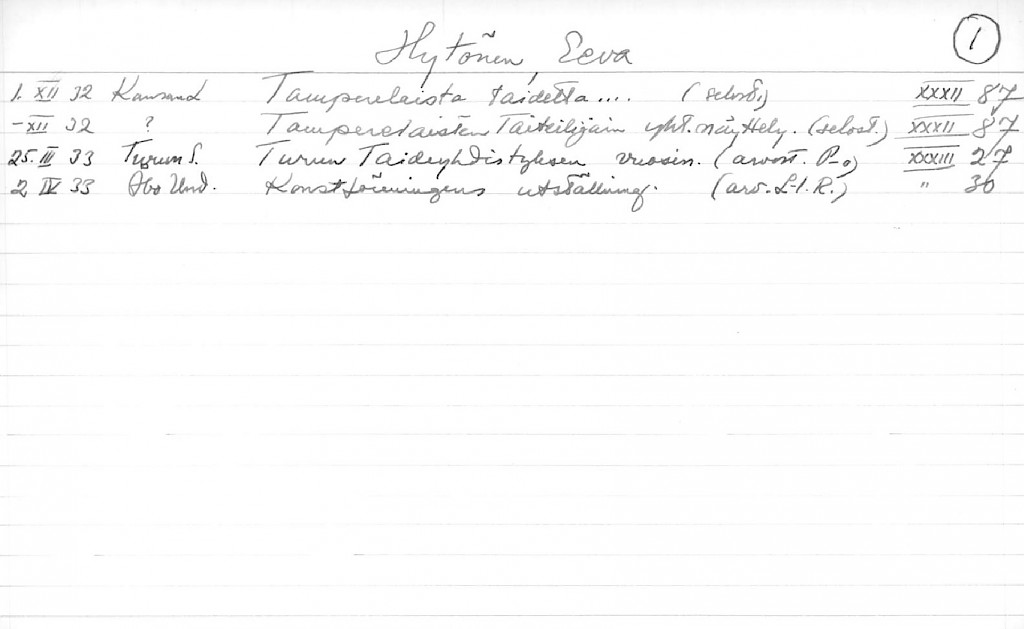 1
Hytönen, Eeva
1. XII 32 Kansand Tamperelaista taidetta.... (selost.) XXXII 87
-XII 32 ? Tamperelaisten Taiteilijain yht. näyttely. (selost.) XXXII 87
25. III 33 Turun S. Turun Taideyhdistyksen vuosin. (arvost. P-o) XXXIII 27
2 IV 33 Åbo Und. Konstföreningens utställning. (arv. L-l. R.) " 30